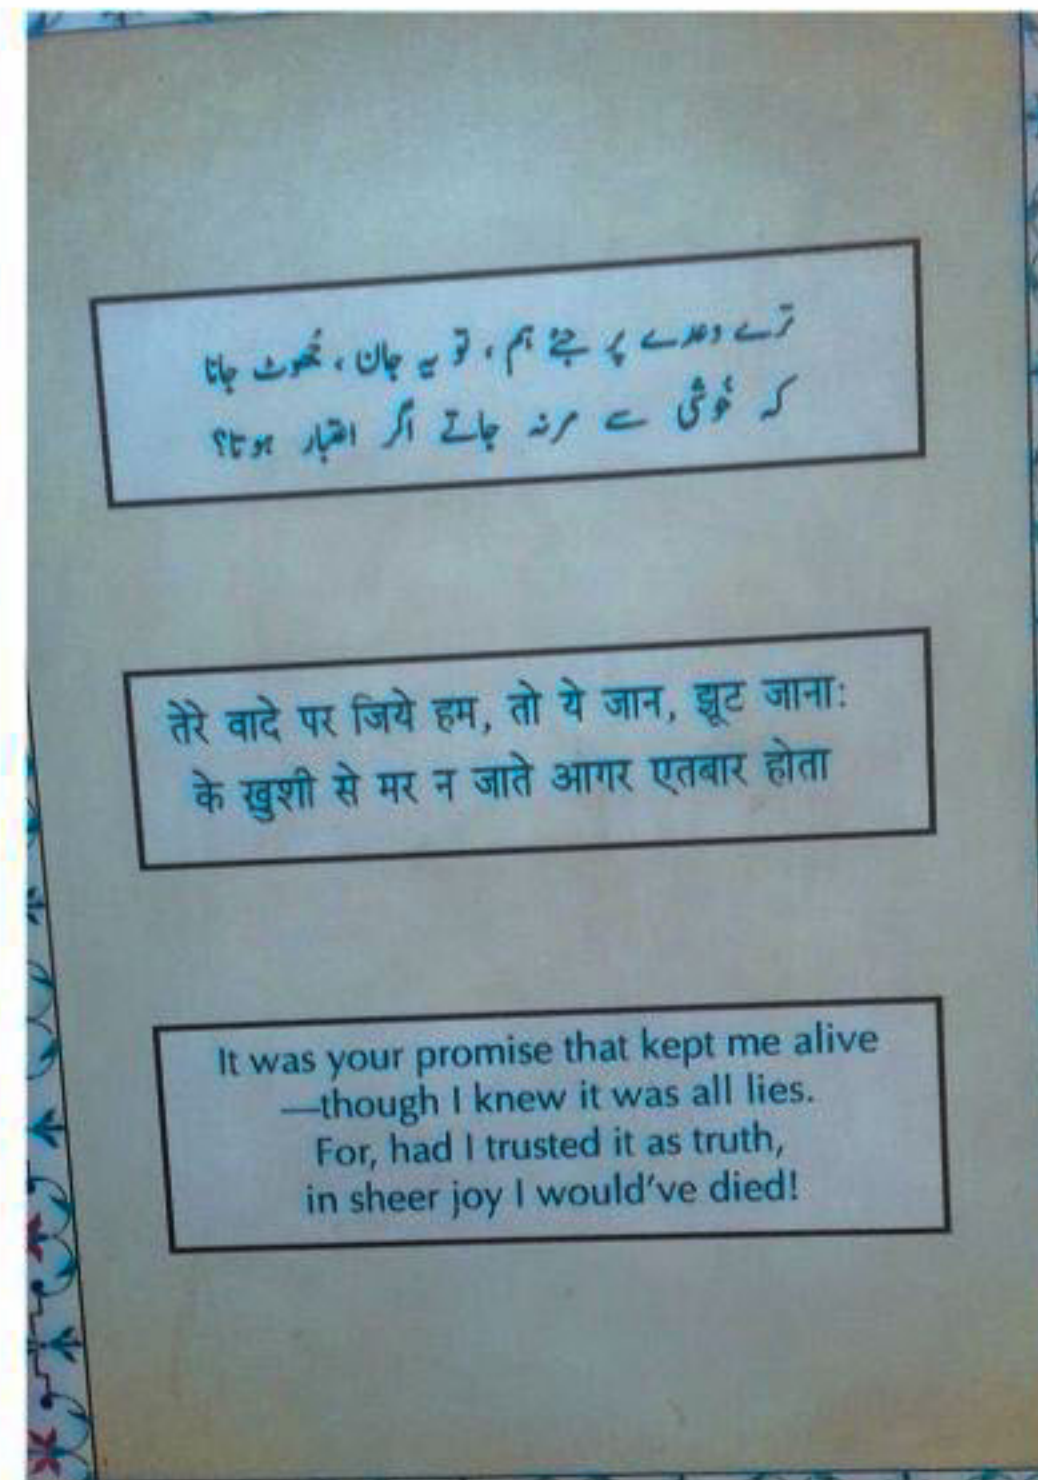 ترے وعدے پر جئے ہم، تو یہ جان، جُھوٹ جانا
کہ خُوشی سے مر نہ جاتے اگر اعتبار ہوتا؟
तेरे वादे पर जिये हम, तो ये जान, झूट जानाः
के ख़ुशी से मर न जाते आगर एतबार होता
It was your promise that kept me alive
—though I knew it was all lies.
For, had I trusted it as truth,
in sheer joy I would've died!